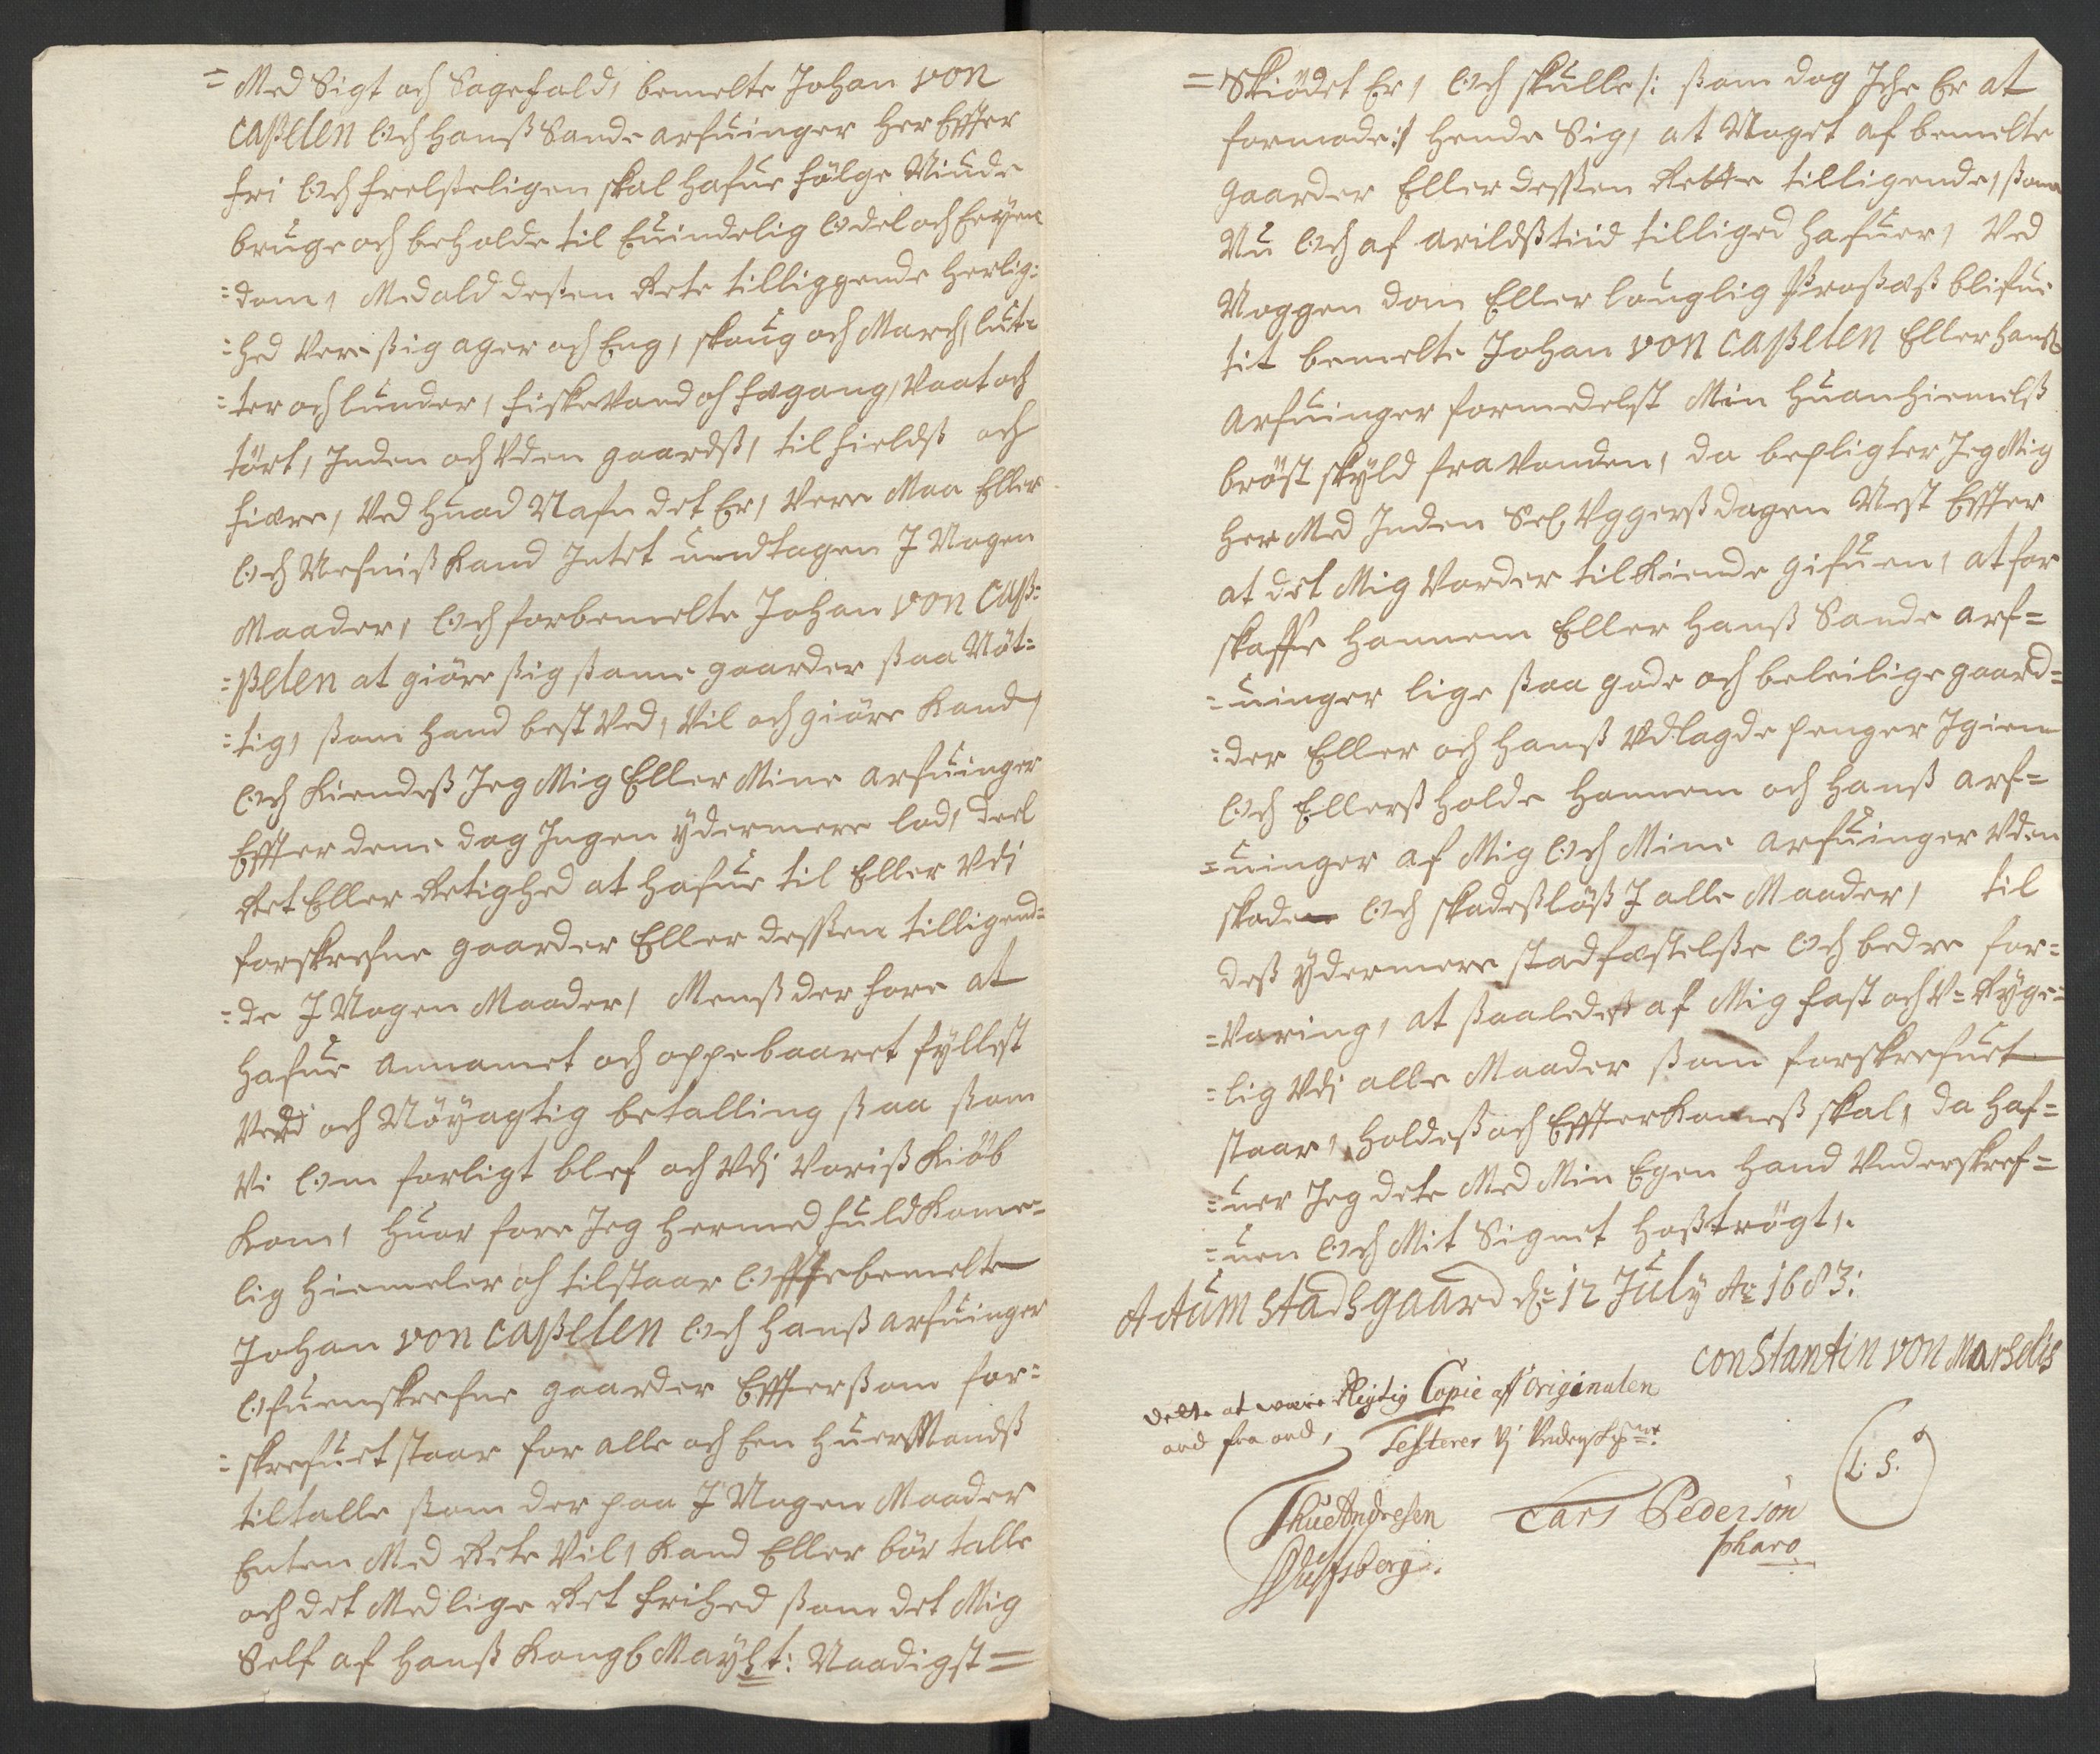 = Med Sigt och Sagefald, bemelte Johan von
Caßelen Och hanß Sande arfuinger her Effter
fri Och frelßeligen skal hafue fölge Niude
bruge och beholde til Euindelig Odel och Eÿen
=dom, Med ald deßen Rete tilliggende herlig=
=hed Vere ßig ager och Eng, skoug och March, lut=
=ter och lunder, fiskevand och fægang, Vaat och
tört, Inden och Uden gaardß, til fieldß och
fiære, Ved huad Nafn det Er, Vere Maa Eller
Och Nefniß kand Intet undtagen I Nogen
Maader, Och forbemelte Johan von Caß=
=ßelen at giöre ßig ßame gaarder ßaa Nöt=
=tig, ßom hand best Ved, Vil och giöre kand,
Och kiendeß Jeg Mig Eller Mine arfuinger
Effter dene dag Ingen ÿdermere lod, deel
Ret Eller Retighed at hafue til Eller Udj
forskrefne gaarder Eller deßen tilligend=
=de I Nogen Maader, Menß der fore at
hafue annamet och oppebaaret fyllest
Verd och Nöÿagtig betalling ßaa ßom
Vi Om forligt blef och Udj Voriß kiöb
kom, huor fore Jeg hermed fuldkome=
lig hiemeler och tilstaar Offtebemelte
Johan von Caßelen Och hanß arfuinger
Ofuenskrefne gaarder Effterßom for=
=skrefuet staar for alle och Een huerß Mandß
tiltalle ßom der paa I Nogen Maader
Enten Med Rete Vil, kand Eller bör talle
och det Med lige Ret frihed ßom det Mig
Self af hanß Kongl Maÿht: Naadigst =
= Skiödet Er, Och skulle /: ßom dog Iche Er at
formode :/ hende Sig, at Noget af bemelte
gaarder Eller deßen Rette tilligende, ßom
Nu Och af arildßtiid tilliged hafuer, Ved
Noggen dom Eller louglig Proßæß blifue
tit bemelte Johan von Caßelen Eller hanß
arfuinger formedelst Min huan hiemelß
bröst skÿld fra Vonden, da bepligter Jeg Mig
her Med Inden Sex Uggerß dagen Nest Effter
at det Mig Vorder til kiende gifuen, at for
skaffe hannem Eller hanß Sande arf=
=uinger lige ßaa gode och beleilige gaard=
=der Eller och hanß Udlagde penger Igien
Och Ellerß holde hannem och hanß arf=
=uinger af Mig Och Mine arfuinger Uden
skade Och skadeßlöß I alle Maader, til
deß ÿdermere stadfæstelße Och bedre for=
=Varing, at ßaaledeß af Mig fast och U=Rÿge=
=lig Udj alle Maader ßom forskrefuet
staar, holdeß och Effterkomeß skal, da haf=
=uer Jeg dete Med Min Egen hand Underskref=
=uen Och Mit Signet hoßtrögt,.
Actum Stadsgaard d: 12 July Ao 1683:
Constantin von Marselis
Dette at were Rigtig Copie aff Originalen
ord fra ord, Testerer Vj
Thue Andresen Lars Pederson
pharo
L: S.